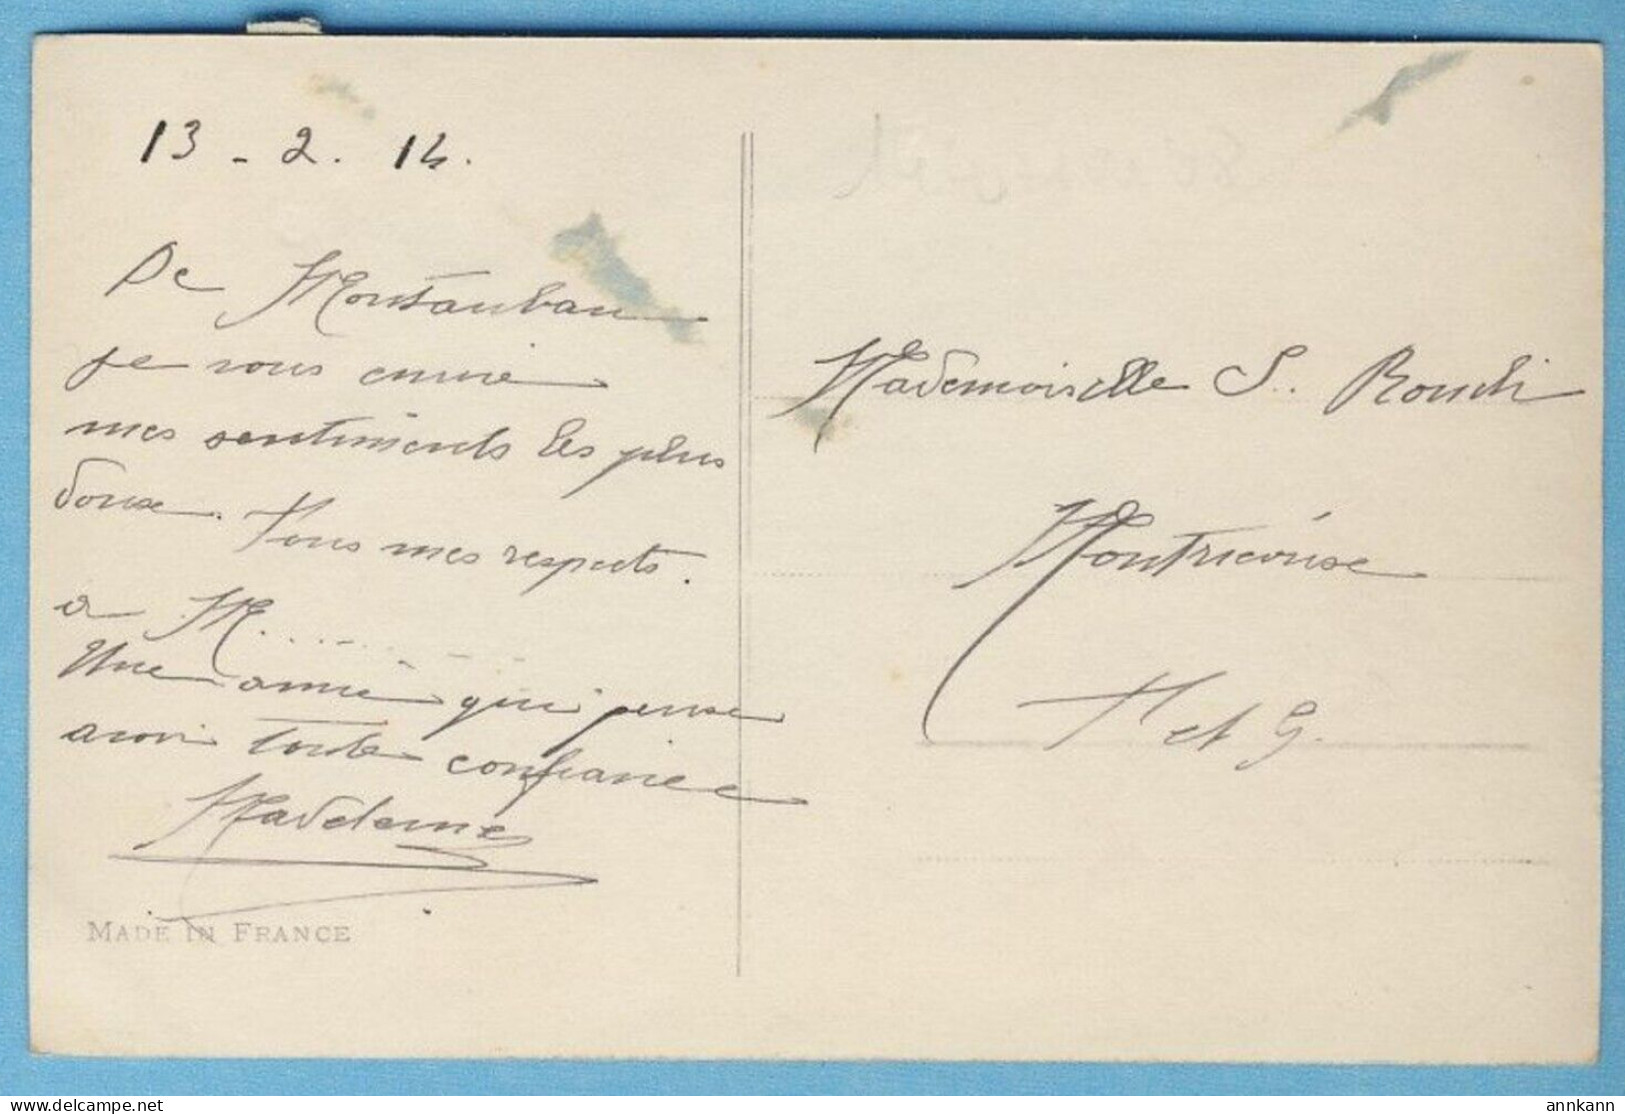 13 - 2. 14.
De Montauban
je vous envoie
mes sentiments les plus
doux. Tous mes respects.
a M..........
Une amie qui pense
avoir toute confiance
Madeleine
MADE IN FRANCE
Mademoiselle S.
Montricoux
T et G.
delcampe.net
annkann